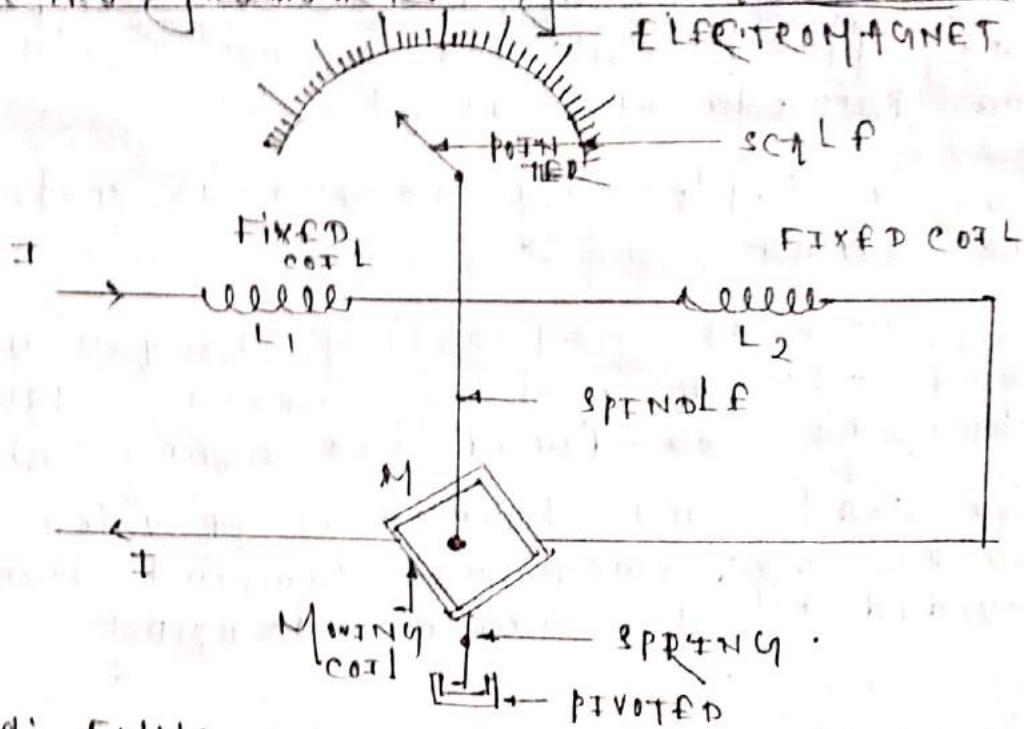 ELECTROMAGNET
SCALE
POINTER
FIXED COIL
FIXED COIL
I
L1
L2
SPINDLE
M
I
MOVING COIL
SPRING
PIVOTED